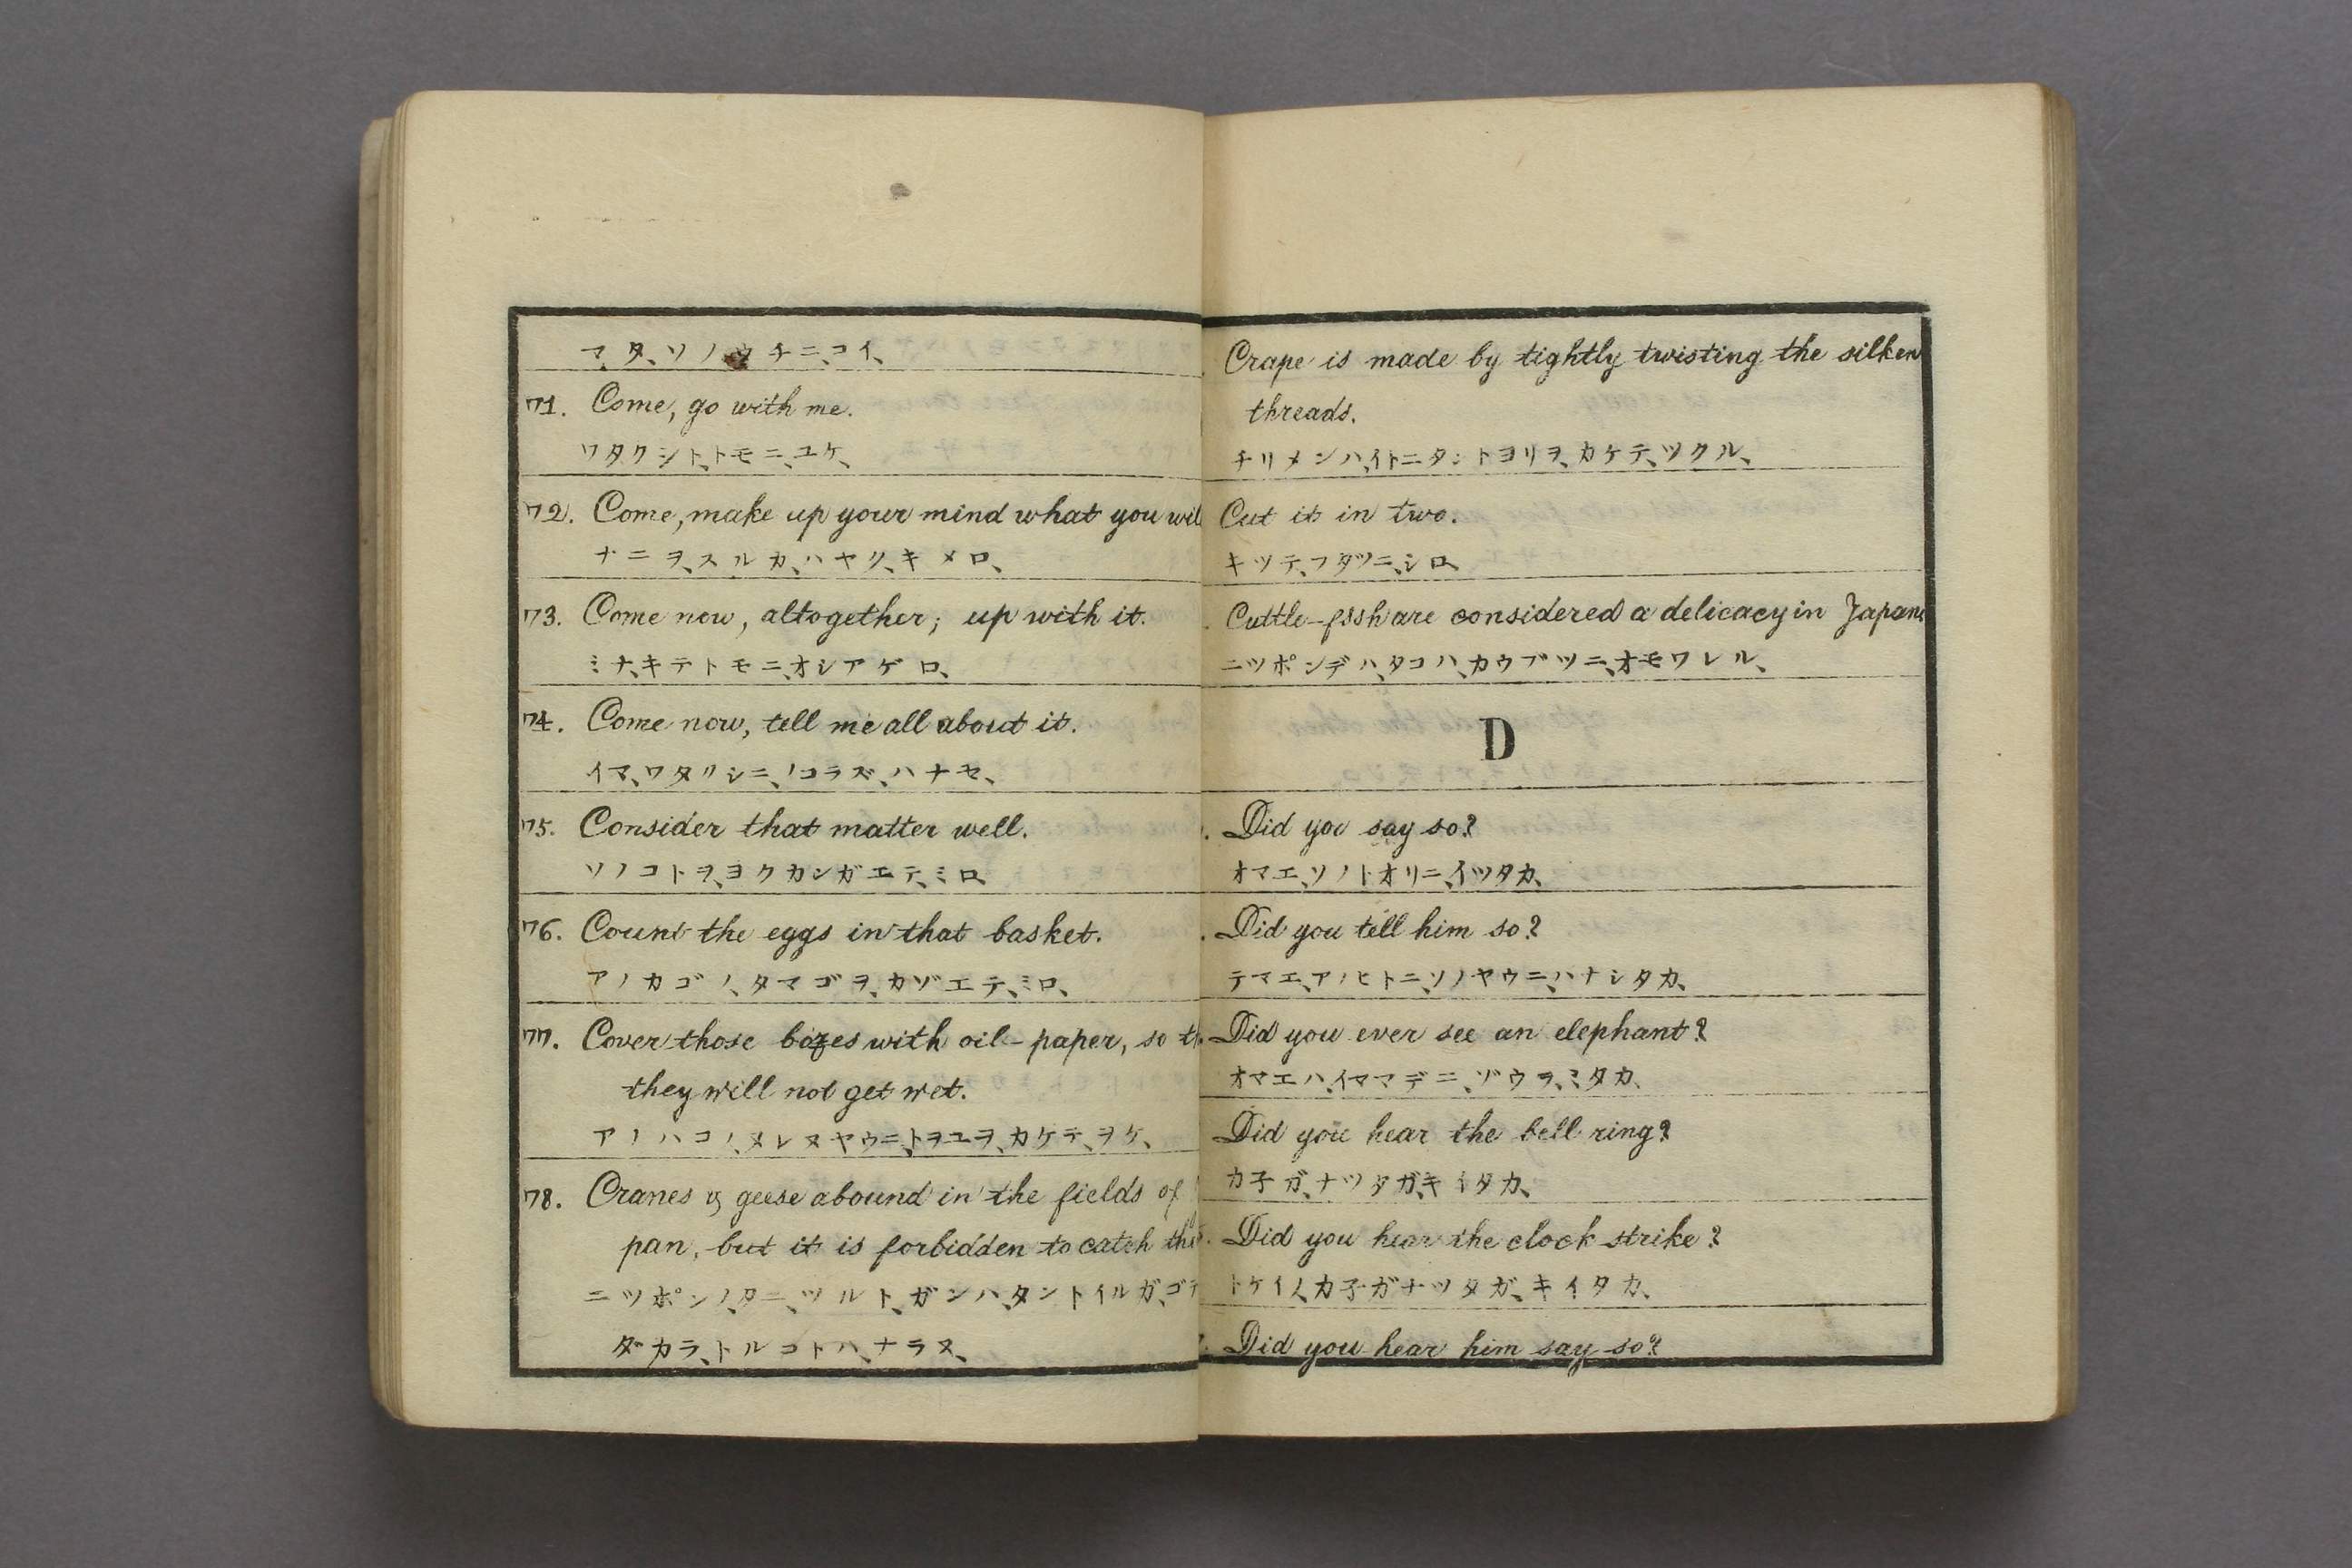 マタ、ソノウチニ、コイ、
71. Come, go with me.
ワタクシト、トモニ、ユケ、
72. Come, make up your mind what you wil
ナニヲ、スルカ、ハヤク、キメロ、
73. Come now, altogether; up with it.
ミナ、キテトモニ、オシアゲロ、
74. Come now, tell me all about it.
イマ、ワタクシニ、ノコラズ、ハナセ、
75. Consider that matter well.
ソノコトヲ、ヨクカンガエテ、ミロ、
76. Count the eggs in that basket.
アノカゴノ、タマゴヲ、カゾエテ、ミロ、
77. Cover those boxes with oil-paper, so t
they will not get wet.
アノハコノ、ヌレヌヤウニ、トヲユヲ、カケテ、ヲケ、
78. Cranes & geese abound in the fields of
pan, but it is forbidden to catch the
ニツポンノ、タニ、ツルト、ガンハ、タントイルガ、ゴテ
ダカラ、トルコトハ、ナラヌ、
Crape is made by tightly twisting the silken
threads.
チリメンハ、イトニタントヨリヲ、カケテ、ツクル、
Cut it in two.
キツテ、フタツニ、シロ、
Cuttle-fish are considered a delicacy in Japan
ニツポンデハ、タコハ、カウブツニ、オモワレル、
D
Did you say so?
オマエ、ソノトオリニ、イツタカ、
Did you tell him so?
テマエ、アノヒトニ、ソノヤウニ、ハナシタカ、
Did you ever see an elephant?
オマエハ、イママデニ、ゾウヲ、ミタカ、
Did you hear the bell ring?
カ子ガ、ナツタガ、キイタカ、
Did you hear the clock strike?
トケイノ、カ子ガナツタガ、キイタカ、
Did you hear him say so?